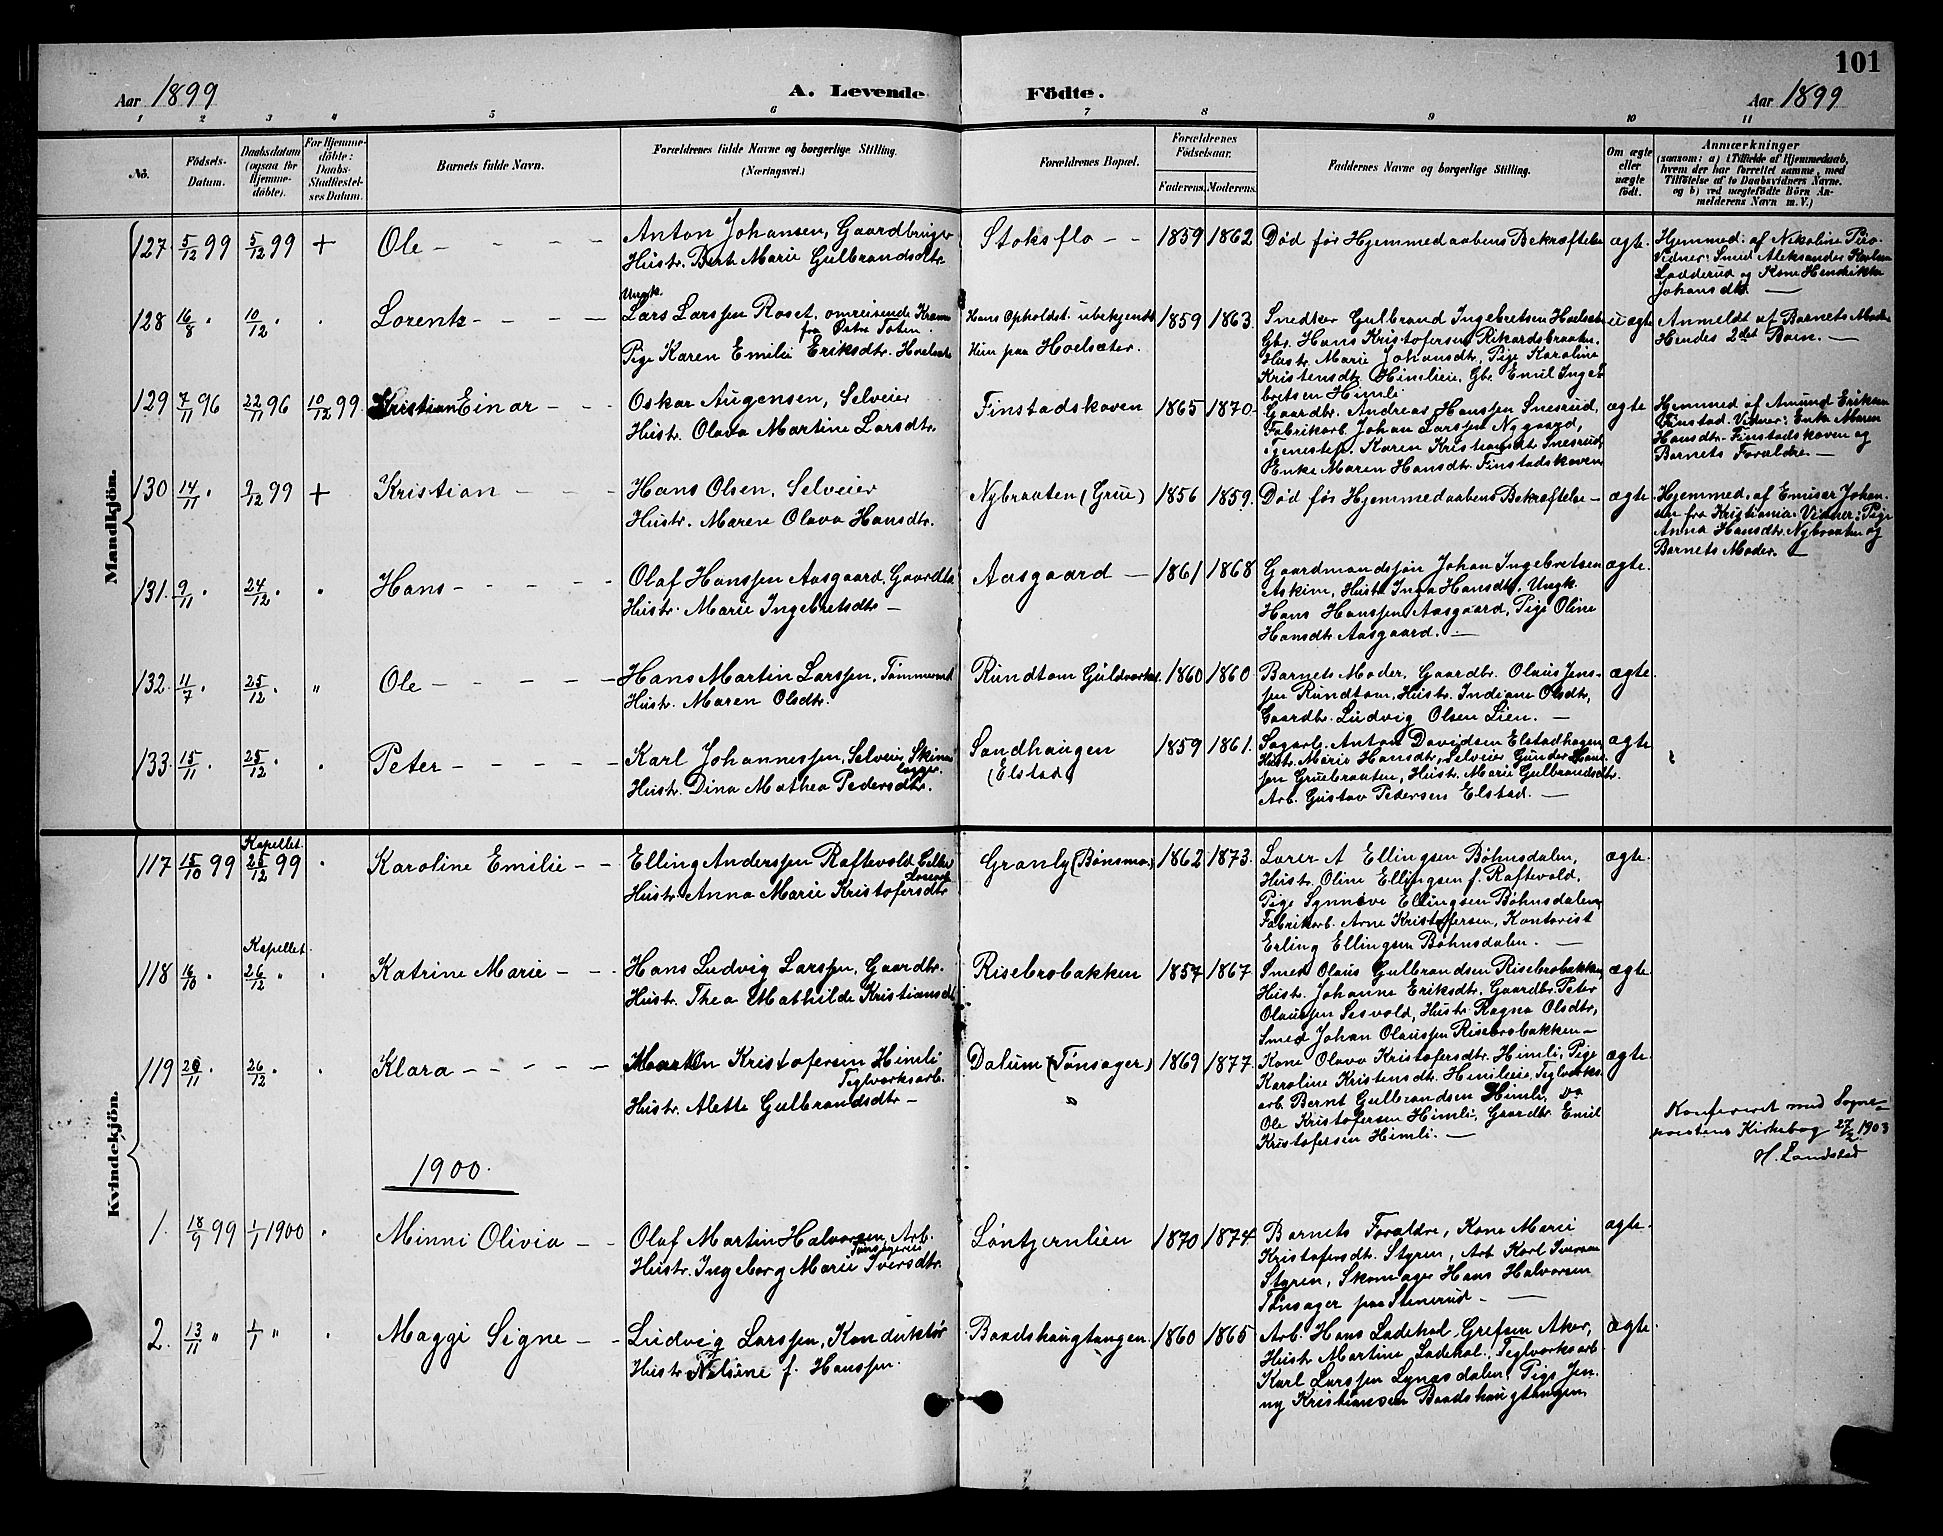 101
Aar 1899
A. Levende
Födte.
Aar 1899
1 2 3 4 5 6 7 8 9 10 11
No.
Födsels-
Datum.
Daabsdatum
(ogsaa for
Hjemme-
döbte).
For Hjemme-
döbte:
Daabs-
Stadfæstel-
ses Datum.
Barnets fulde Navn.
Forældrenes fulde Navne og borgerlige Stilling.
(Næringsvei.)
Forældrenes Bopæl.
Forældrenes
Födselsaar.
Faderens. Moderens.
Faddernes Navne og borgerlige Stilling.
Om ægte
eller
uægte
födt.
Anmærkninger
(saasom: a) i Tilfælde af Hjemmedaab,
hvem der har forrettet samme, med
Tilföielse af to Daabsvidners Navne.
og b) ved uægtefödte Börn An-
melderens Navn m. V.)
Mandkjön.
127. 5/12 99 5/12 99 + Ole
Anton Johansen, Gaardbruger
Hustr. Bert. Marie Gulbrandsdtr.
Stoksflo
1859 1862
Død før Hjemmedaabens Bekræftelse
ægte.
Hjemmed. af Nikoline
Vidner: Smed Aleksander
Ladderud og Kone Hendrikke
Johansdtr.
128 16/8 " 10/12 " Lorentz
Ungk.
Lars Larssen Roset, omreisende Kram
fra Østre Toten.
Pige Karen Emilie Eriksdtr. Hoelsæter
Hans Opholdst. ubekjendt
Hun paa Hoelsæter.
1859 1863
Snedker Gulbrand Ingebretsen Hoelsæter
Gbr. Hans Kristofersen Rikardsbraaten,
Hustr. Marie Johansdtr, Pige Karoline
Kristensdtr Himlieie, Gbr. Emil Inge-
bretsen Himli
uægte
Anmeldt af Barnets Moder
Hendes 2det Barn.
129 7/11 96 22/11 96 10/12 99 Kristian Einar
Oskar Augensen, Selveier
Hustr. Olava Martine Larsdtr.
Finstadskoven
1865 1870
Gaardbr. Andreas Hanssen Snesrud,
Fabrikarb. Johan Larssen Nygaard,
Tjenestep. Karen Kristiansdtr Snesrud,
Enke Maren Hansdtr. Finstadskoven
ægte
Hjemmed af Amund Eriksen
Finstad. Vidner: Enke Maren
Hansdtr. Finstadskoven og
Barnets Forældre
130 14/11 " 9/12 99 + Kristian
Hans Olsen, Selveier
Hustr. Maren Olava Hansdtr.
Nybraaten (Grue)
1856 1859.
Død før Hjemmedaabens Bekræftelse
ægte.
Hjemmed. af Johan-
sen fra Kristiania. Vidner: Pige
Anna Hansdtr. Nybraaten og
Barnets Moder.
131. 9/11 " 24/12 " Hans
Olaf Hanssen Aasgaard, Gaardbr
Hustr. Marie Ingebretsdtr
Aasgaard
1861 1868
Gaardmandssøn Johan Ingebretsen
Askim, Hustr. Inga Hansdtr, Ungk.
Hans Hanssen Aasgaard, Pige Oline
Hansdtr Aasgaard.
ægte.
132. 11/7 " 25/12 " Ole
Hans Martin Larssen, Tømmerm.
Hustr. Maren Olsdtr.
Rundtom Guldverket
1860 1860
Barnets Moder, Gaardbr. Olaus Jens-
sen Rundtom, Hustr. Indiane Olsdtr,
Gaardbr. Ludvig Olsen Lien.
ægte.
133. 15/11 " 25/12 " Peter
Karl Johannessen, Selveier, Skinne
lægger.
Hustr. Dina Mathea Pedersdtr.
Sandhaugen
(Elstad)
1859 1861.
Sagarb. Anton Davidsen Elstadhagen,
Hustr. Marie Hansdtr, Selveier Gunder Han-
sen Gruebraaten, Hustr. Marie Gulbrandsdtr.
Arb. Gustav Pedersen Elstad.
ægte
Kvindekjön.
Kapellet
117 15/10 99 25/12 99 " Karoline Emilie
Elling Anderssen Raftevold
Hustr. Anna Marie Kristofersdtr
Granly (Bønsmo)
1862 1873.
Lærer A Ellingsen Bøhnsdalen,
Hustr. Oline Ellingsen f. Raftevold,
Pige Synnøve Ellingsen Bøhnsdalen,
Fabrikarb. Arne Kristofersen, Kontorist
Erling Ellingsen Bøhnsdalen.
ægte
Kapellet
118 16/10 " 26/12 " Katrine Marie
Hans Ludvig Larssen, Gaardbr.
Hustr. Thea Mathilde Kristiansdtr
Risebrobakken
1857 1867
Smed Olaus Gulbrandsen Risebrobakken,
Hustr. Johanne Eriksdtr, Gaardbr. Peter
Olaussen Sesvold, Hustr Ragna Olsdtr,
Smed Johan Olaussen Risebrobakken
ægte.
119 26/11 " 26/12 " Klara
Martin Kristofersen Himli
Teglverksarb.
Hustr. Alette Gulbrandsdtr
Dalum (Tønsager)
1869 1877.
Kone Olava Kristofersdtr. Himli, Pige
Karoline Kristensdtr. Himlieie, Teglverks-
arb. Bernt Gulbrandsen Himli, Do
Ole Kristofersen Himli, Gaardbr Emil
Kristofersen Himli.
ægte.
Konfereret med Sogne-
præstens Kirkebog 27/2 1903
H. Landstad
1900.
1. 18/9 99 1/1 1900 " Minni Olivia
Olaf Martin Halvorsen, Arb.
Hustr. Ingeborg Marie Iversdtr.
Løntjernlien
1870 1874
Barnets Forældre, Kone Marie
Kristofersdtr. Styren, Arb Karl Iversen
Styren, Skomager Hans Halvorsen
Tønsager paa Stenerud
ægte.
2. 13/11 " 1/1 " Maggi Signe
Ludvig Larssen, Konduktør
Hustr. Nelsine f. Hanssen.
Baadshaugtangen
1860 1865
Arb. Hans Ladehol, Grefsen Aker,
Hustr Martine Ladehol, Teglverksarb
Karl Larssen Lynasdalen, Pige Jen-
ny Kristiansen Baadshaugtangen
ægte.